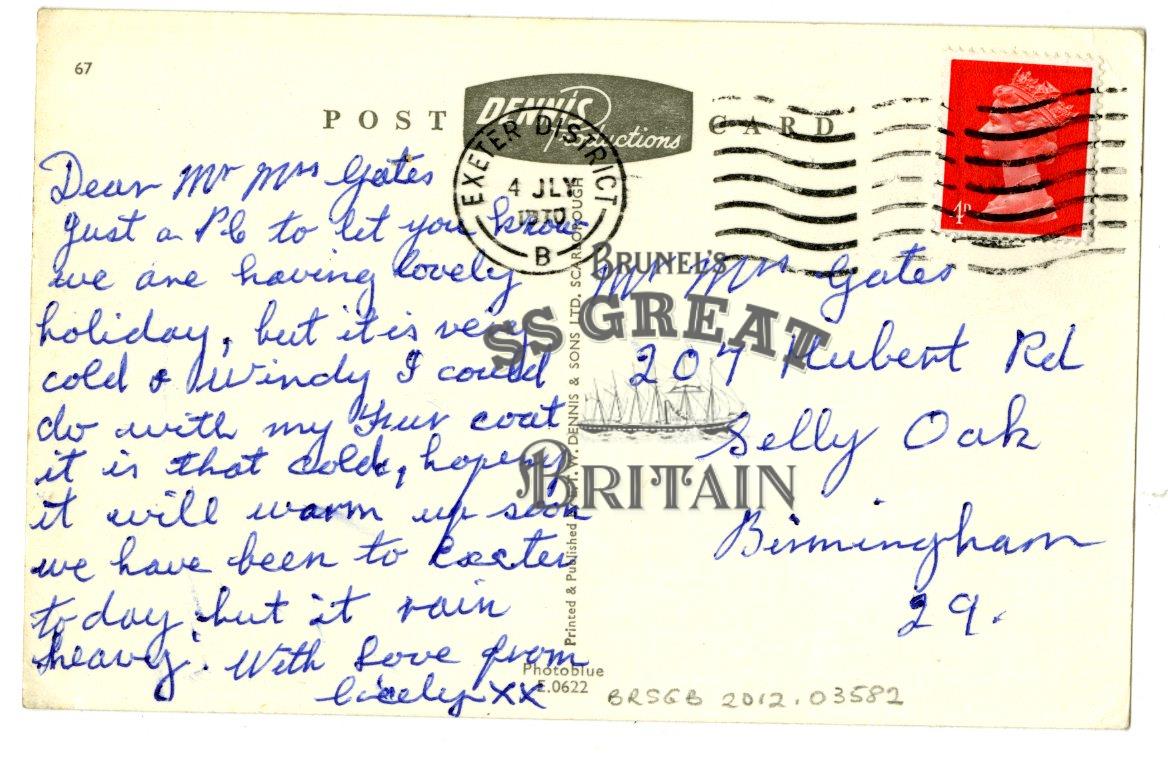 67
POST CARD
DENNIS
Productions
EXETER DISTRICT
4 JLY
1970
B
Dear Mr Mrs Gates
Just a PC to let you know
we are having lovely
holiday, but it is very
cold & Windy I could
do with my Fur coat
it is that cold, hopeing
it will warm up soon
we have been to Exeter
today, but it rain
heavy. With Love from
Cicely XX
4D
Mr Mrs Gates
207 Hubert Rd
Selly Oak
Birmingham
29.
BRUNEL'S
SS GREAT
BRITAIN
Printed & Published by E. T. W. DENNIS & SONS LTD. SCARBOROUGH
Photoblue
E.0622
BRSGB 2012.03582